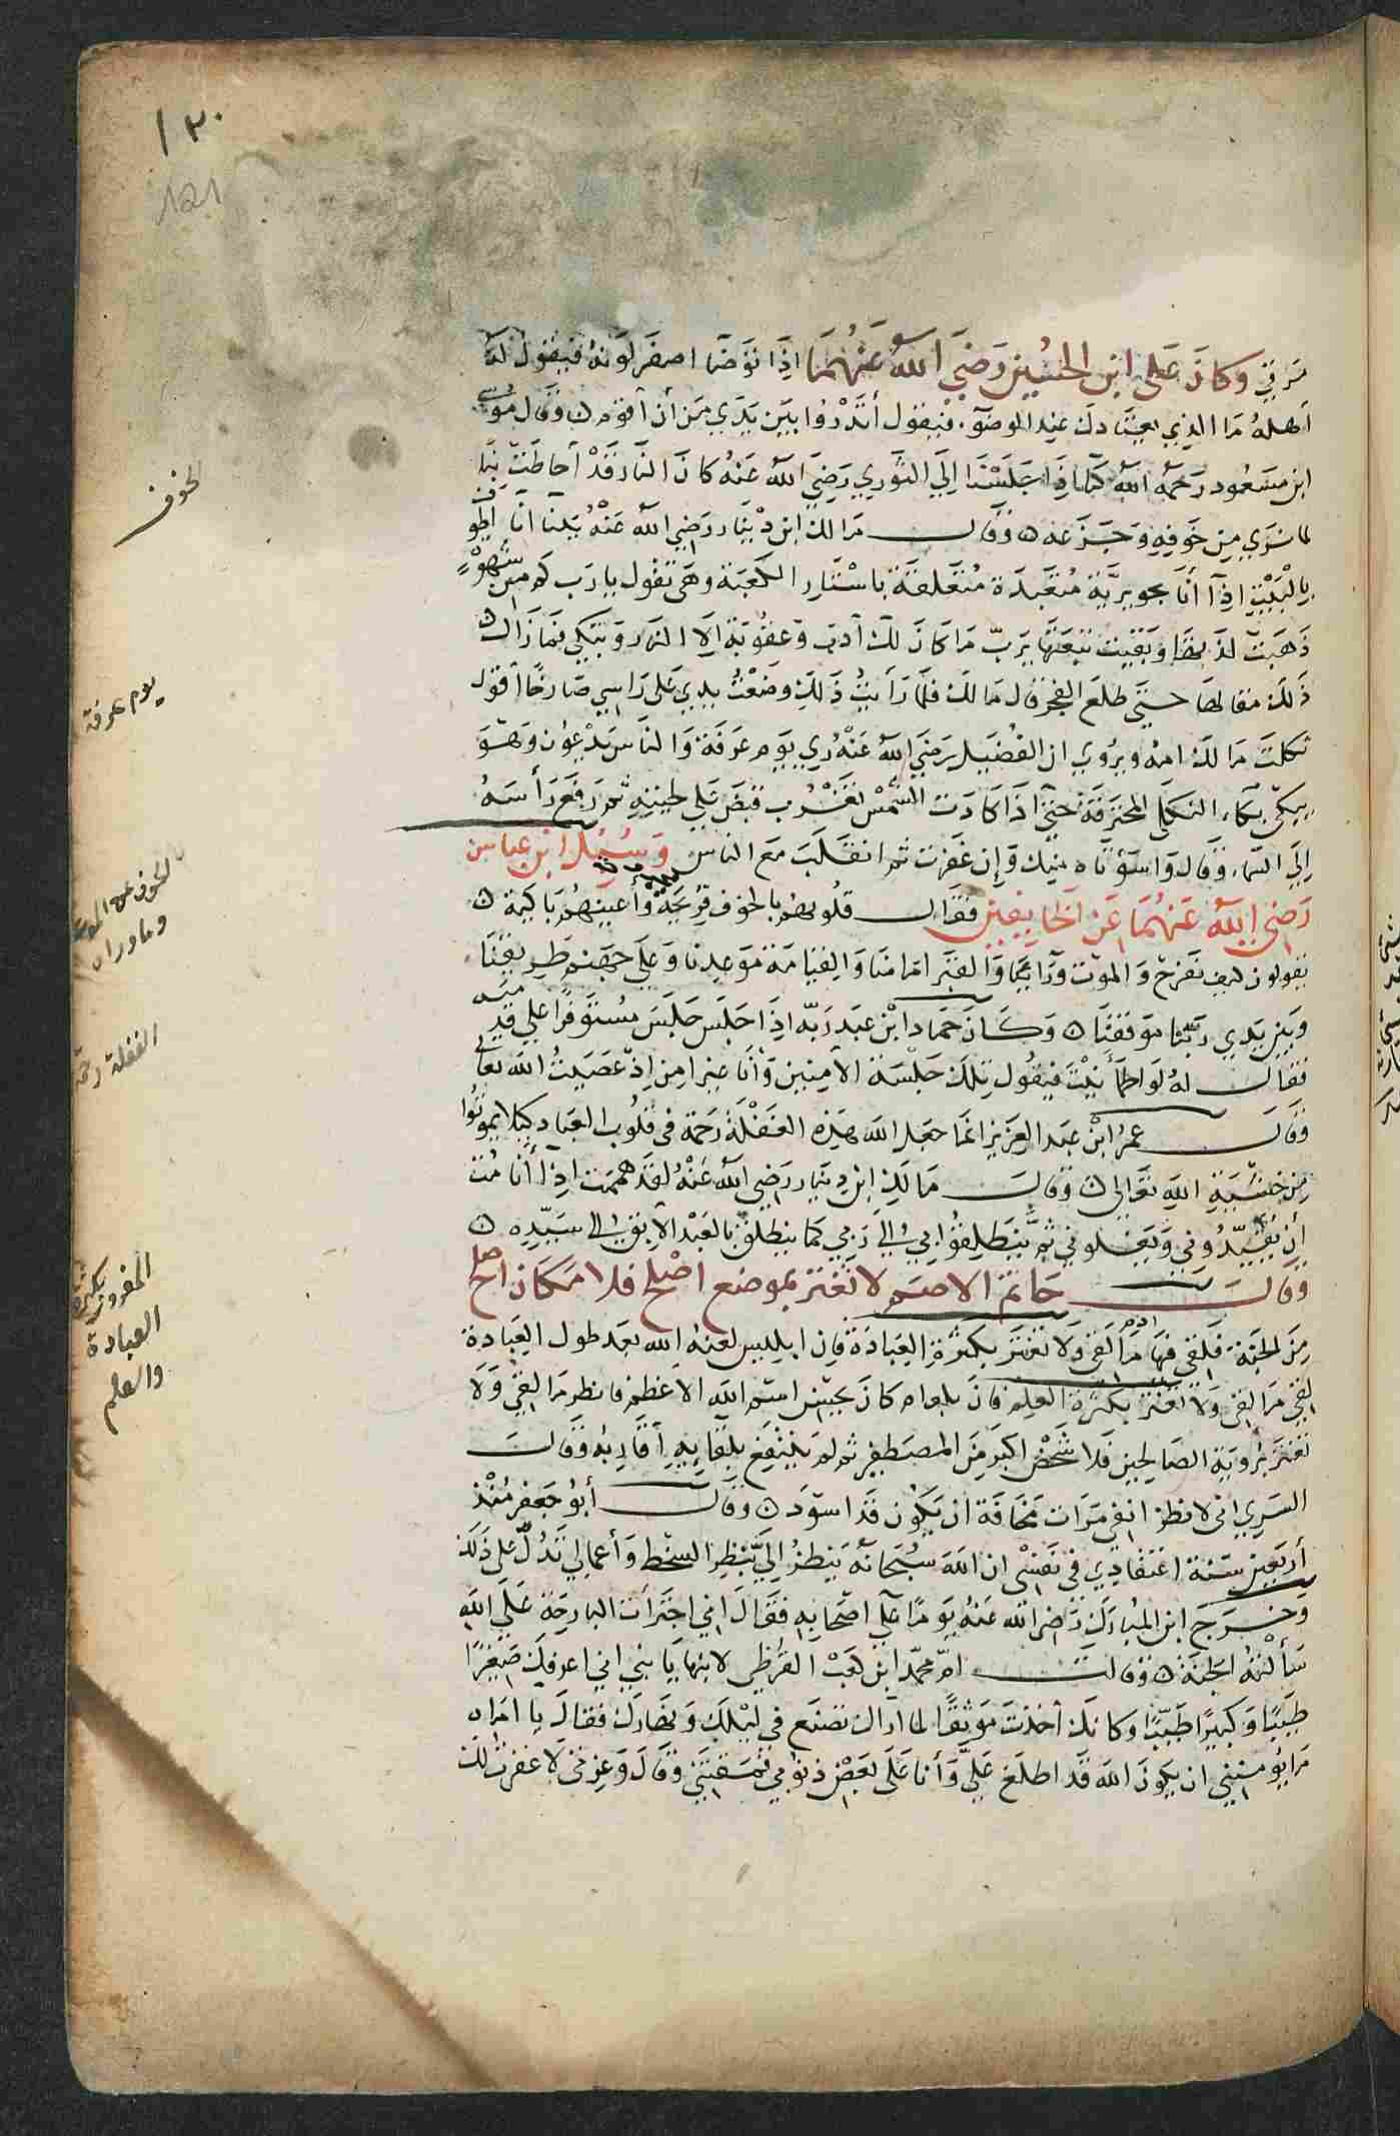 ١٣٠
١٥١
مزقي وكان على ابن الحسين رضي الله عنهما اذا توضا اصفر لونه فيقول له
أهله ما الذي يعتادك عند الوضوء فيقول أتدرون بين يدي من أن أقوم وقال موسى
ابن مسعود رحمه الله كنا اذا جلسنا الي الثوري رضي الله عنه كان النار قد أحاطت بنا
لما نري من خوفه وجزعه وقال مالك ابن دينار رضي الله عنه بينا انا اطوف
بالبيت اذا أنا بجويرية متعبدة متعلقة باستار الكعبة وهي تقول يا رب كم من شهوة
ذهبت لذتها وبقيت تبعتها يا رب ما كان لك أدب وعقوبة الا النار وتبكي فما زال
ذلك مقالها حتي طلع الفجر قال مالك فلما رأيت ذلك وضعت يدي على راسي صارخا أقول
ثكلت مالك امه ويروي ان الفضيل رضي الله عنه رءي يوم عرفة والناس يدعون وهو
يبكي بكاء الثكلى المحترقة حتي اذا كادت الشمس تغرب قبض على لحيته ثم رفع رأسه
إلي السماء وقال واسوءتاه منك وإن غفرت ثم انقلب مع الناس وسئل ابن عباس
رضي الله عنهما عن الخايفين فقال قلوبهم بالخوف قرحة وأعينهم باكية
يقولون كيف نفرح والموت وراءنا والقبر امامنا والقيامة موعدنا وعلى جهنم طريقنا
وبين يدي ربنا موقفنا وكان حماد ابن عبد ربه اذا جلس جلس مستوفزا على قدميه
فقال له لو اطمأنيت فيقول تلك جلسة الآمنين وأنا غير امن اذ عصيت الله تعالى
وقال عمر ابن عبد العزيز انما جعل الله هذه الغفلة رحمة في قلوب العباد كيلا يموتوا
من خشية الله تعالى وقال مالك ابن دينار رضي الله عنه لقد هممت اذا أنا مت
أن يقيدوني ويغلوني ثم ينطلقوا بي إلى ربي كما ينطلق بالعبد الآبق الى سيده
وقال حاتم الاصم لا تغتر بموضع اصلح فلا مكان اصلح
من الجنة فلقي فيها ادم ما لقي ولا تغتر بكثرة العبادة فان ابليس لعنه الله بعد طول العبادة
لقي ما لقي ولا تغتر بكثرة العلم فان بلعام كان يحسن اسم الله الاعظم فانظر ما لقي ولا
تغتر برؤية الصالحين فلا شخص اكبر من المصطفى ثم لم ينتفع بلقايه أقاربه وقال
السري اني لانظر انفي مرات مخافة ان يكون قد اسود وقال أبو جعفر منذ
أربعين سنة اعتقادي في نفسي ان الله سبحانه ينظر إلي بنظر السخط وأعمالي تدل على ذلك
وخرج ابن المبارك رضي الله عنه يوما على اصحابه فقال اني اجترأت البارحة على الله
سألته الجنة وقالت ام محمد ابن كعب القرظي لابنها يا بني اني اعرفك صغيرا
طيبا وكبيرا طيبا وكانك أخذت موثقا لما اراك تصنع في ليلك ونهارك فقال يا اماه
ما يؤمنني ان يكون الله قد اطلع علي وأنا على بعض ذنوبي فمقتني وقال وعزتي لا غفرت لك
الخوف
يوم عرفة
الخوف من الموت
وما وراه
الغفلة رحمة
المغرور بكثرة
العبادة
والعلم